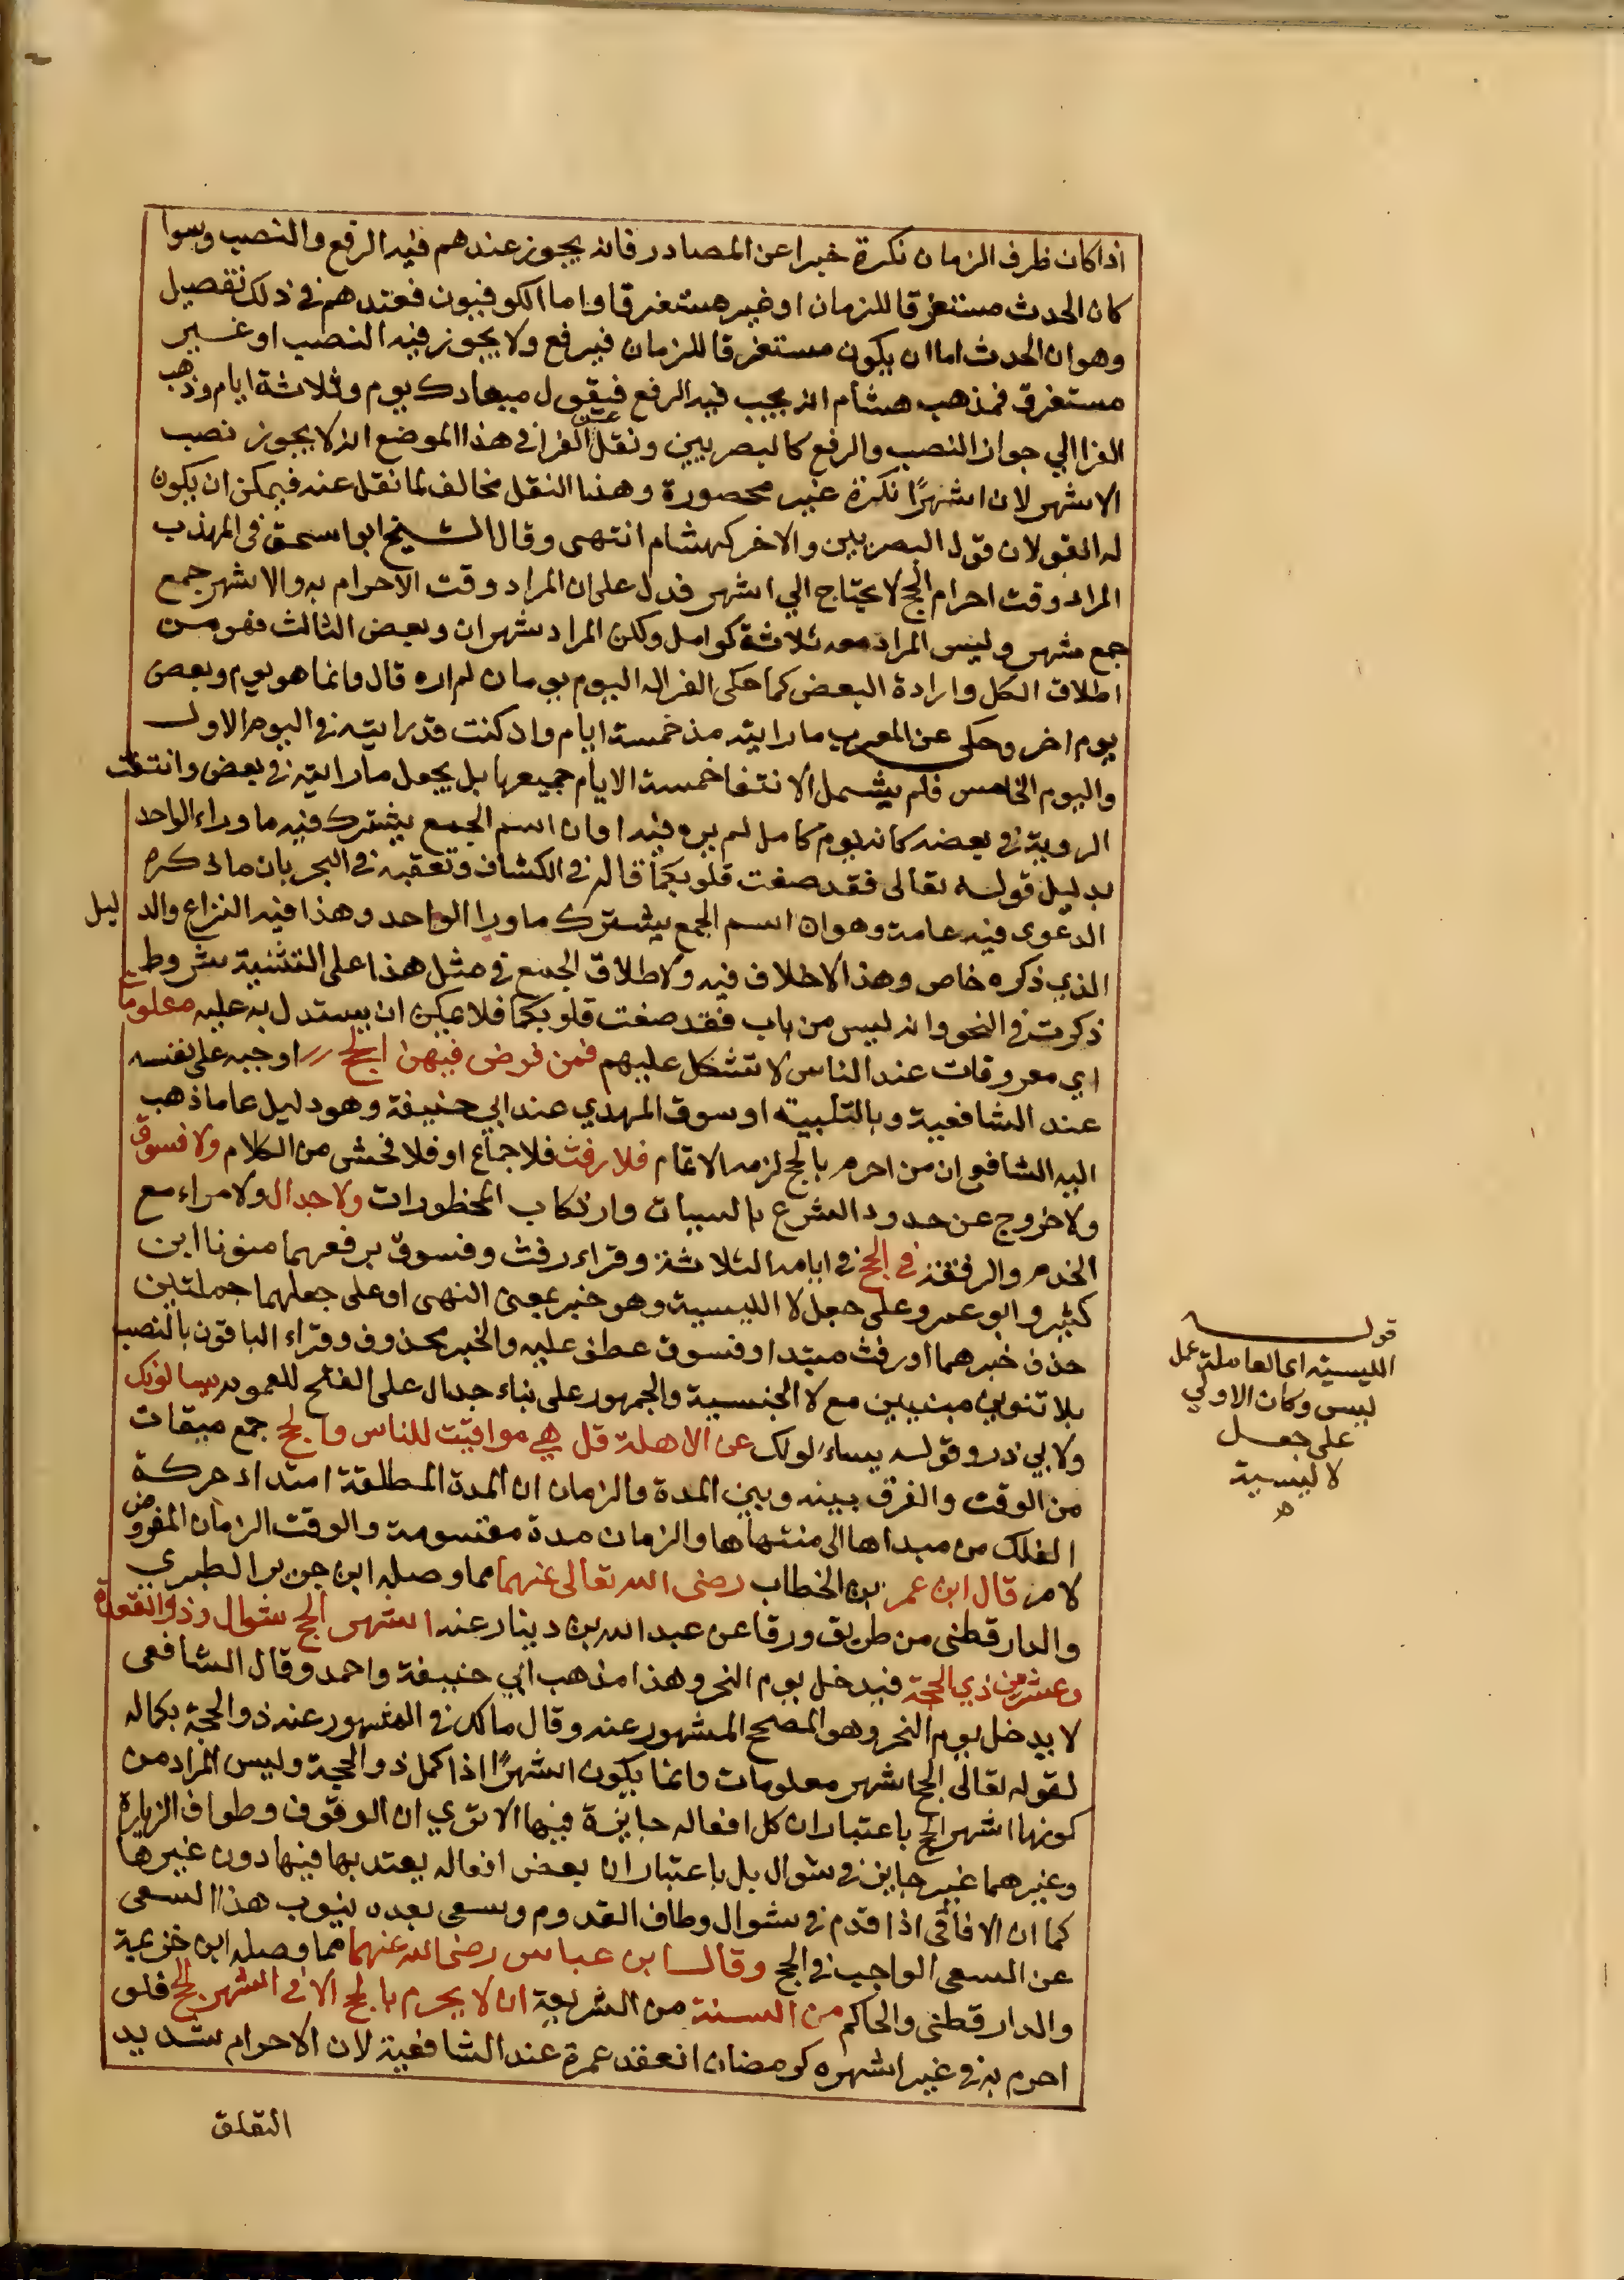 اذا كان ظرف الزمان نكرة خبرا عن المصادر فانه يجوز عندهم فيه الرفع والنصب وسوا
كان الحدث مستغرقا للزمان او غير مستغرقا واما الكوفيون فعندهم في ذلك تفصيل
وهو ان الحدث اما ان يكون مستغرقا للزمان فيرفع ولا يجوز فيه النصب او غير
مستغرق فمذهب هشام انه يجب فيه الرفع فيقول ميعادك يوم وثلاثة ايام وذهب
الفرا الي جواز النصب والرفع كالبصريين ونقل عن الفرا في هذا الموضع انه لا يجوز نصب
الاشهر لان اشهرًا نكرة غير محصورة وهذا النقل مخالف لما نقل عنه فيمكن ان يكون
له القولان قول البصريين والاخر كهشام انتهى وقال الشيخ ابو اسحق في المهذب
المراد وقت احرام الحج لا يحتاج الي اشهر فدل على ان المراد وقت الاحرام به والاشهر جمع
جمع شهر وليس المراد معه ثلاثة كوامل ولكن المراد شهران وبعض الثالث فهو من
اطلاق الكل وارادة البعض كما حكى الفرا له اليوم يومان لم اره قال وانما هو يوم وبعض
يوم اخر وحكى عن العرب ما رايته مذ خمسة ايام واد كنت قد رايته في اليوم الاول
واليوم الخامس فلم يشمل الانتفا خمسة الايام جميعها بل يجعل ما رايته في بعض وانتفت
الروية في بعضه كانه يوم كامل لم يره فيه او ان اسم الجمع يشترك فيه ما وراء الواحد
بدليل قوله تعالى فقد صغت قلوبكما قاله في الكشاف وتعقبه في البحر بان ما ذكره
الدعوى فيه عامة وهو ان اسم الجمع يشترك ما ورا الواحد وهذا فيه النزاع والدليل
الذي ذكره خاص وهذا لا خلاف فيه ولاطلاق الجمع في مثل هذا على التثنية شروط
ذكرت في النحو وانه ليس من باب فقد صغت قلوبكما فلا يمكن ان يستدل به عليه معلومات
اي معروفات عند الناس لا تشكل عليهم فمن فرض فيهن الحج اوجبه على نفسه
عند الشافعية وبالتلبية او سوق الهدي عند ابي حنيفة وهو دليل عاما ذهب
اليه الشافعي ان من احرم بالحج لزمه الاتمام فلا رفث فلا جماع او فلا فحش من الكلام ولا فسوق
ولا خروج عن حدود الشرع بالسيات وارتكاب المحظورات ولا جدال ولا مراء مع
الخدم والرفقة في الحج في ايامه الثلاثة وقراء رفث وفسوق برفعهما منونا ابن
كثير وابو عمرو على جعل لا الليسية وهو خبر بمعنى النهى او على جعلهما جملتين
حذف خبرهما او رفث مبتدا وفسوق عطف عليه والخبر محذوف وقراء الباقون بالنصب
بلا تنوين مبنيين مع لا الجنسية والجمهور على بناء جدال على الفتح للعموم يسالونك
ولابي ذر وقوله يساءلونك عن الاهلة قل هي مواقيت للناس والحج جمع ميقات
من الوقت والفرق بينه وبين المدة والزمان ان المدة المطلقة امتداد حركة
الفلك من مبداها الى منتهاها والزمان مدة مقسومة والوقت الزمان المفروض
لامر قال ابن عمر بن الخطاب رضى الله تعالى عنهما مما وصله ابن جرير الطبري
والدارقطنى من طريق ورقا عن عبد الله بن دينار عنه اشهر الحج شوال وذو القعدة
وعشر من ذي الحجة فيدخل يوم النحر وهذا مذهب ابي حنيفة واحمد وقال الشافعى
لا يدخل يوم النحر وهو المصحح المشهور عنه وقال مالك في المشهور عنه ذو الحجة بكماله
لقوله تعالى الحج اشهر معلومات وانما يكون اشهرًا اذا كمل ذو الحجة وليس المراد من
كونها اشهر الحج باعتبار ان كل افعاله جايزة فيها الا تري ان الوقوف وطواف الزيارة
وغيرهما غير جايز في شوال بل باعتبار ان بعض افعاله يعتد بها فيها دون غيرها
كما ان الافاقى اذا قدم في شوال وطاف القدوم وسعى بعده ينوب هذا السعى
عن السعى الواجب في الحج وقال ابن عباس رضى الله عنهما مما وصله ابن خزيمة
والدارقطنى والحاكم من السنة من الشريعة ان لا يحرم بالحج الا في اشهر الحج فلو
احرم به في غير اشهره كرمضان انعقد عمرة عند الشافعية لان الاحرام شديد
التعلق
قوله
الليسية اى العاملة عمل
ليس وكان الاولي
على جعل
لا ليسية
ه